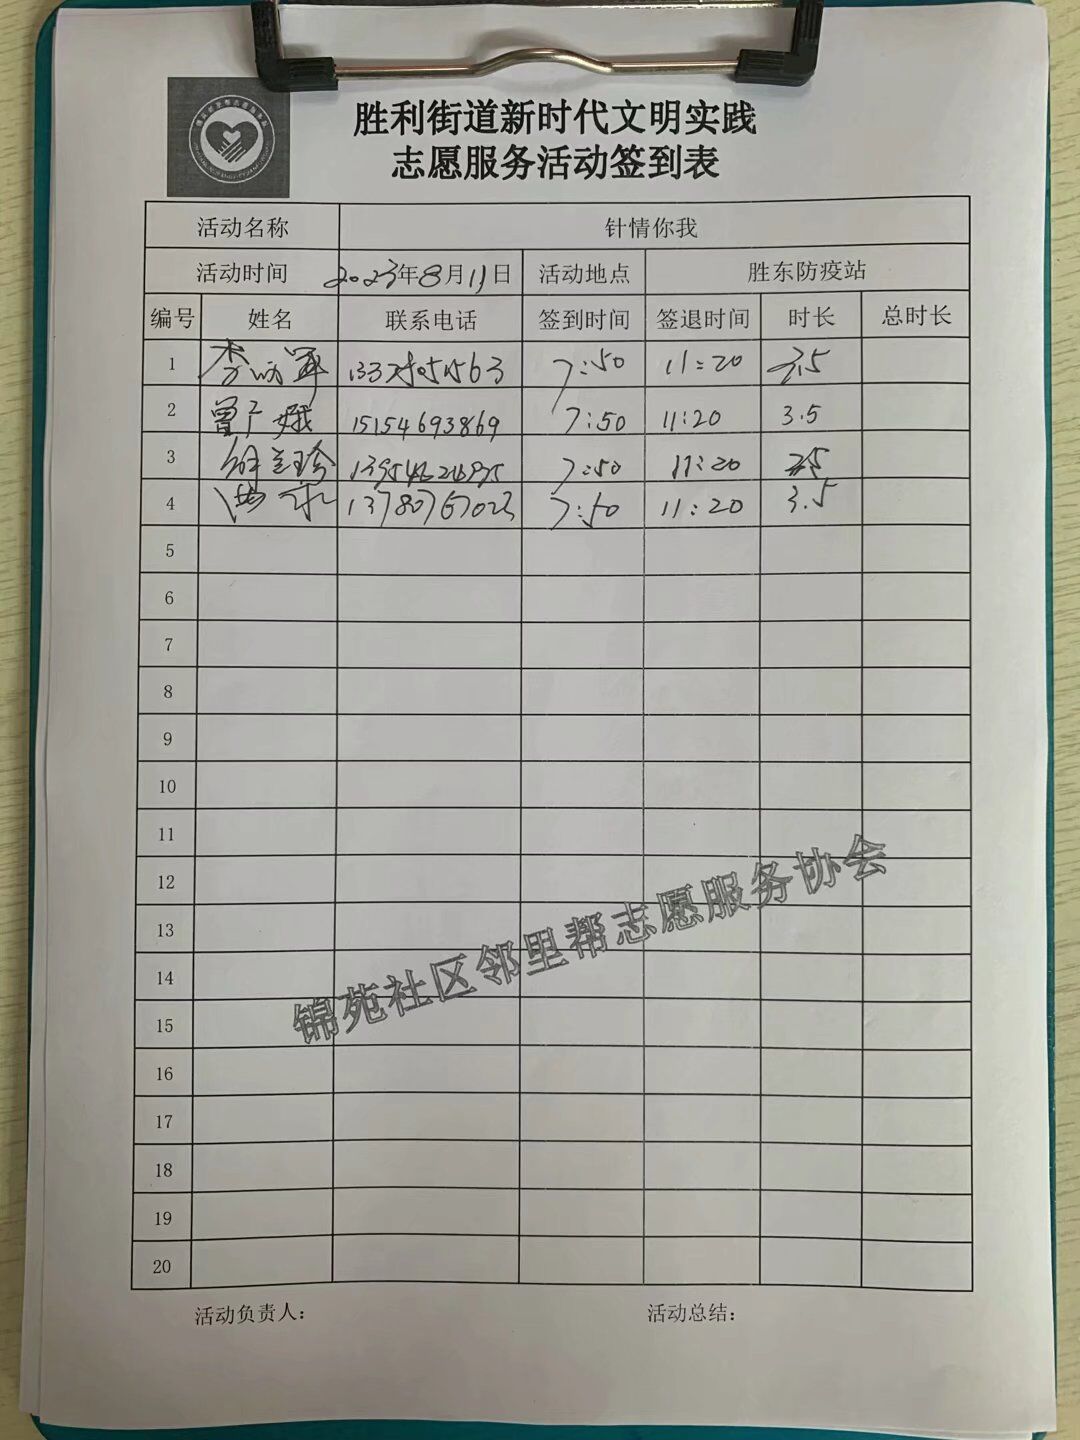 胜利街道新时代文明实践
志愿服务活动签到表
活动名称 针情你我
活动时间 2023年8月11日 活动地点 胜东防疫站
编号 姓名 联系电话 签到时间 签退时间 时长 总时长
1 李 7:50 11:20 3.5
2 曾广娥 15154693869 7:50 11:20 3.5
3 徐兰珍 7:50 11:20 3.5
4 13780767023 7:50 11:20 3.5
5
6
7
8
9
10
11
12
13
14
15
16
17
18
19
20
锦苑社区邻里帮志愿服务协会
活动负责人: 活动总结: